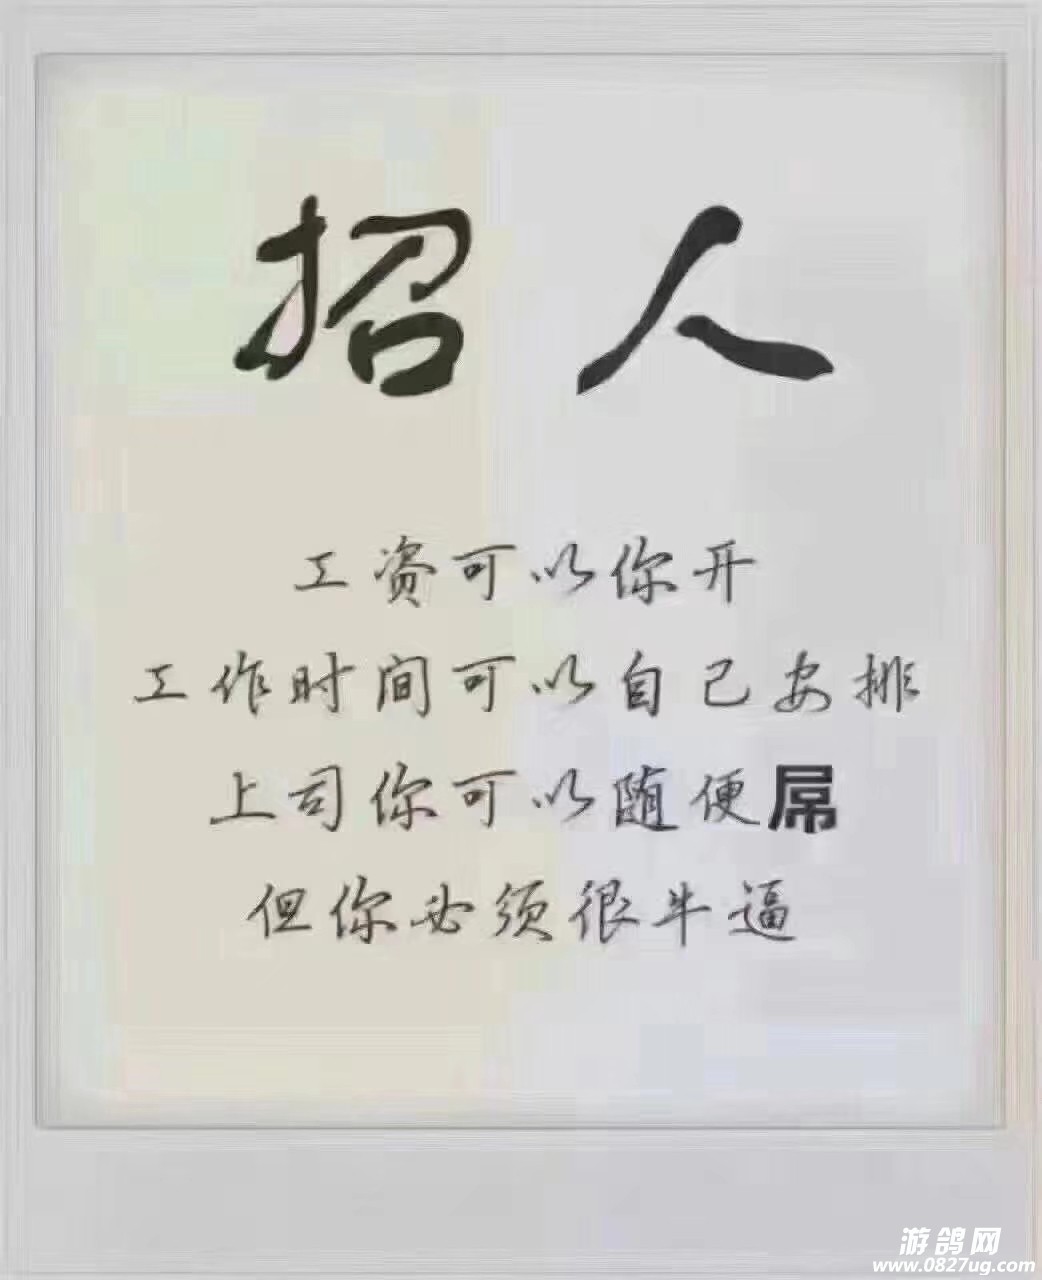 招人
工资可以你开
工作时间可以自己安排
上司你可以随便屌
但你必须很牛逼
游鸽网
www.0827ug.com